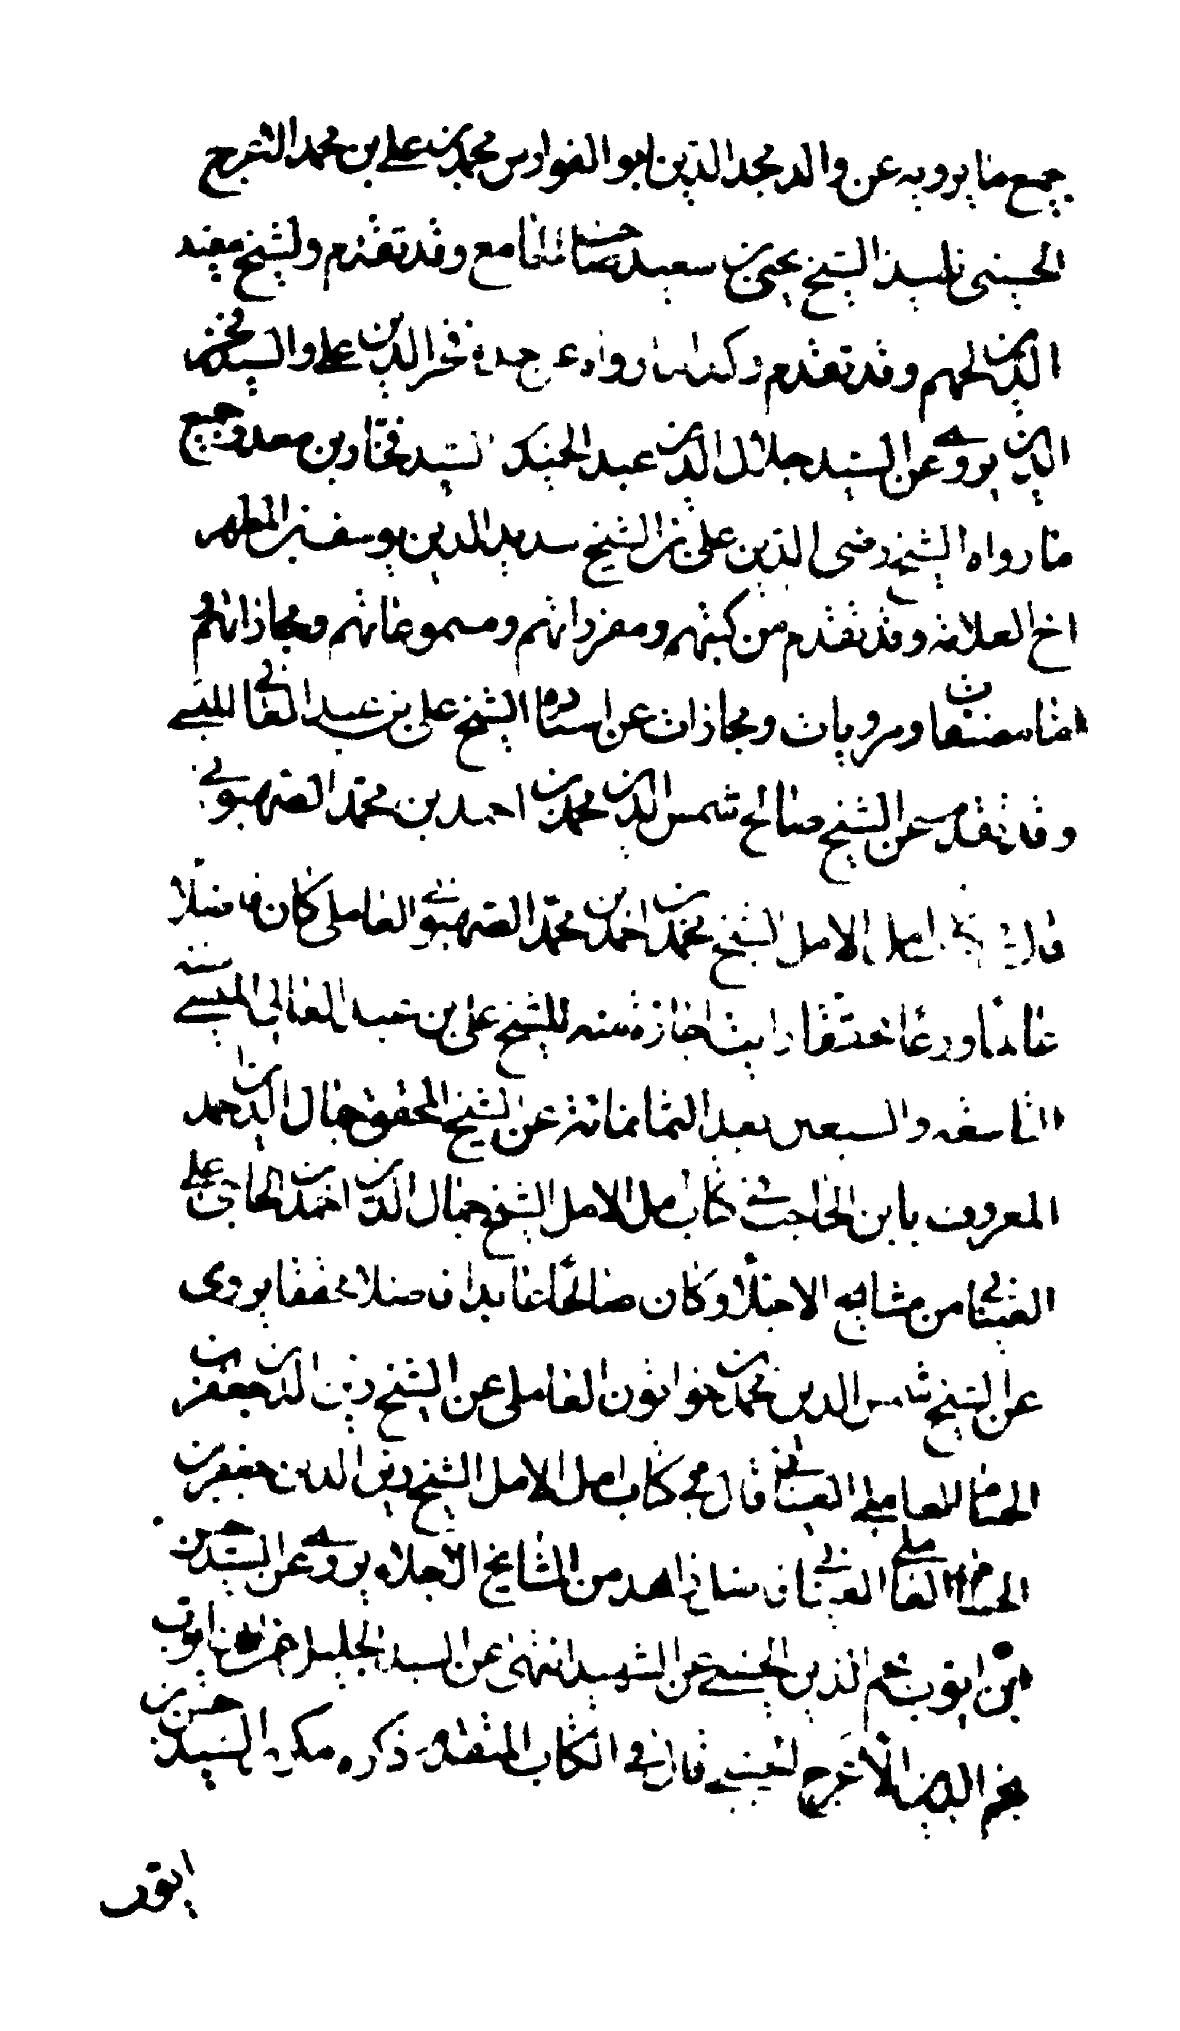 جميع ما يرويه عن والد مجد الدين ابو الفوارس محمد بن علي بن محمد الاعرج
الحسيني تلميذ الشيخ يحيى بن سعيد صاحب الجامع وقد تقدم والشيخ مفيد
الدين الجهم وقد تقدم وكذا ما رواه عن جده فخر الدين علي والسيد فخر
الدين يروي عن السيد جلال الدين عبد الحميد السيد فخار بن معد وجميع
ما رواه الشيخ رضي الدين علي بن الشيخ سديد الدين يوسف بن المطهر
اخ العلامة وقد تقدم من كتبهم ومفرداتهم ومسموعاتهم ومجازاتهم
ومصنفات ومرويات ومجازات عن استاده الشيخ علي بن عبد العالي الميسي
وقد تقدم عن الشيخ صالح شمس الدين محمد بن احمد بن محمد الصهيوني
قال في امل الامل الشيخ محمد بن احمد بن محمد الصهيوني العاملي كان فاضلا
عالما ورعا محققا رايت اجازة منه للشيخ علي بن عبد العالي الميسي سنة
التاسعة والسبعين بعد الثمانمائة عن الشيخ المحقق جمال الدين احمد
المعروف بابن الحاج علي في كتاب امل الامل الشيخ جمال الدين احمد بن الحاج علي
العيناثي من مشايخ الاجلاء وكان صالحا عابدا فاضلا محققا يروي
عن الشيخ شمس الدين محمد بن خواتون العاملي عن الشيخ زين الدين جعفر بن
الحسام العاملي العيناثي قال في كتاب امل الامل الشيخ زين الدين جعفر بن
الحسام العاملي العيناثي فاضل زاهد من المشايخ الاجلاء يروي عن السيد حسن بن
بن ايوب نجم الدين الحسيني عن الشهيد انتهى عن السيد الجليل ايوب
نجم الدين الاعرج الحسيني قال في الكتاب المتقدم ذكره مكررا السيد حسن بن
ايوب